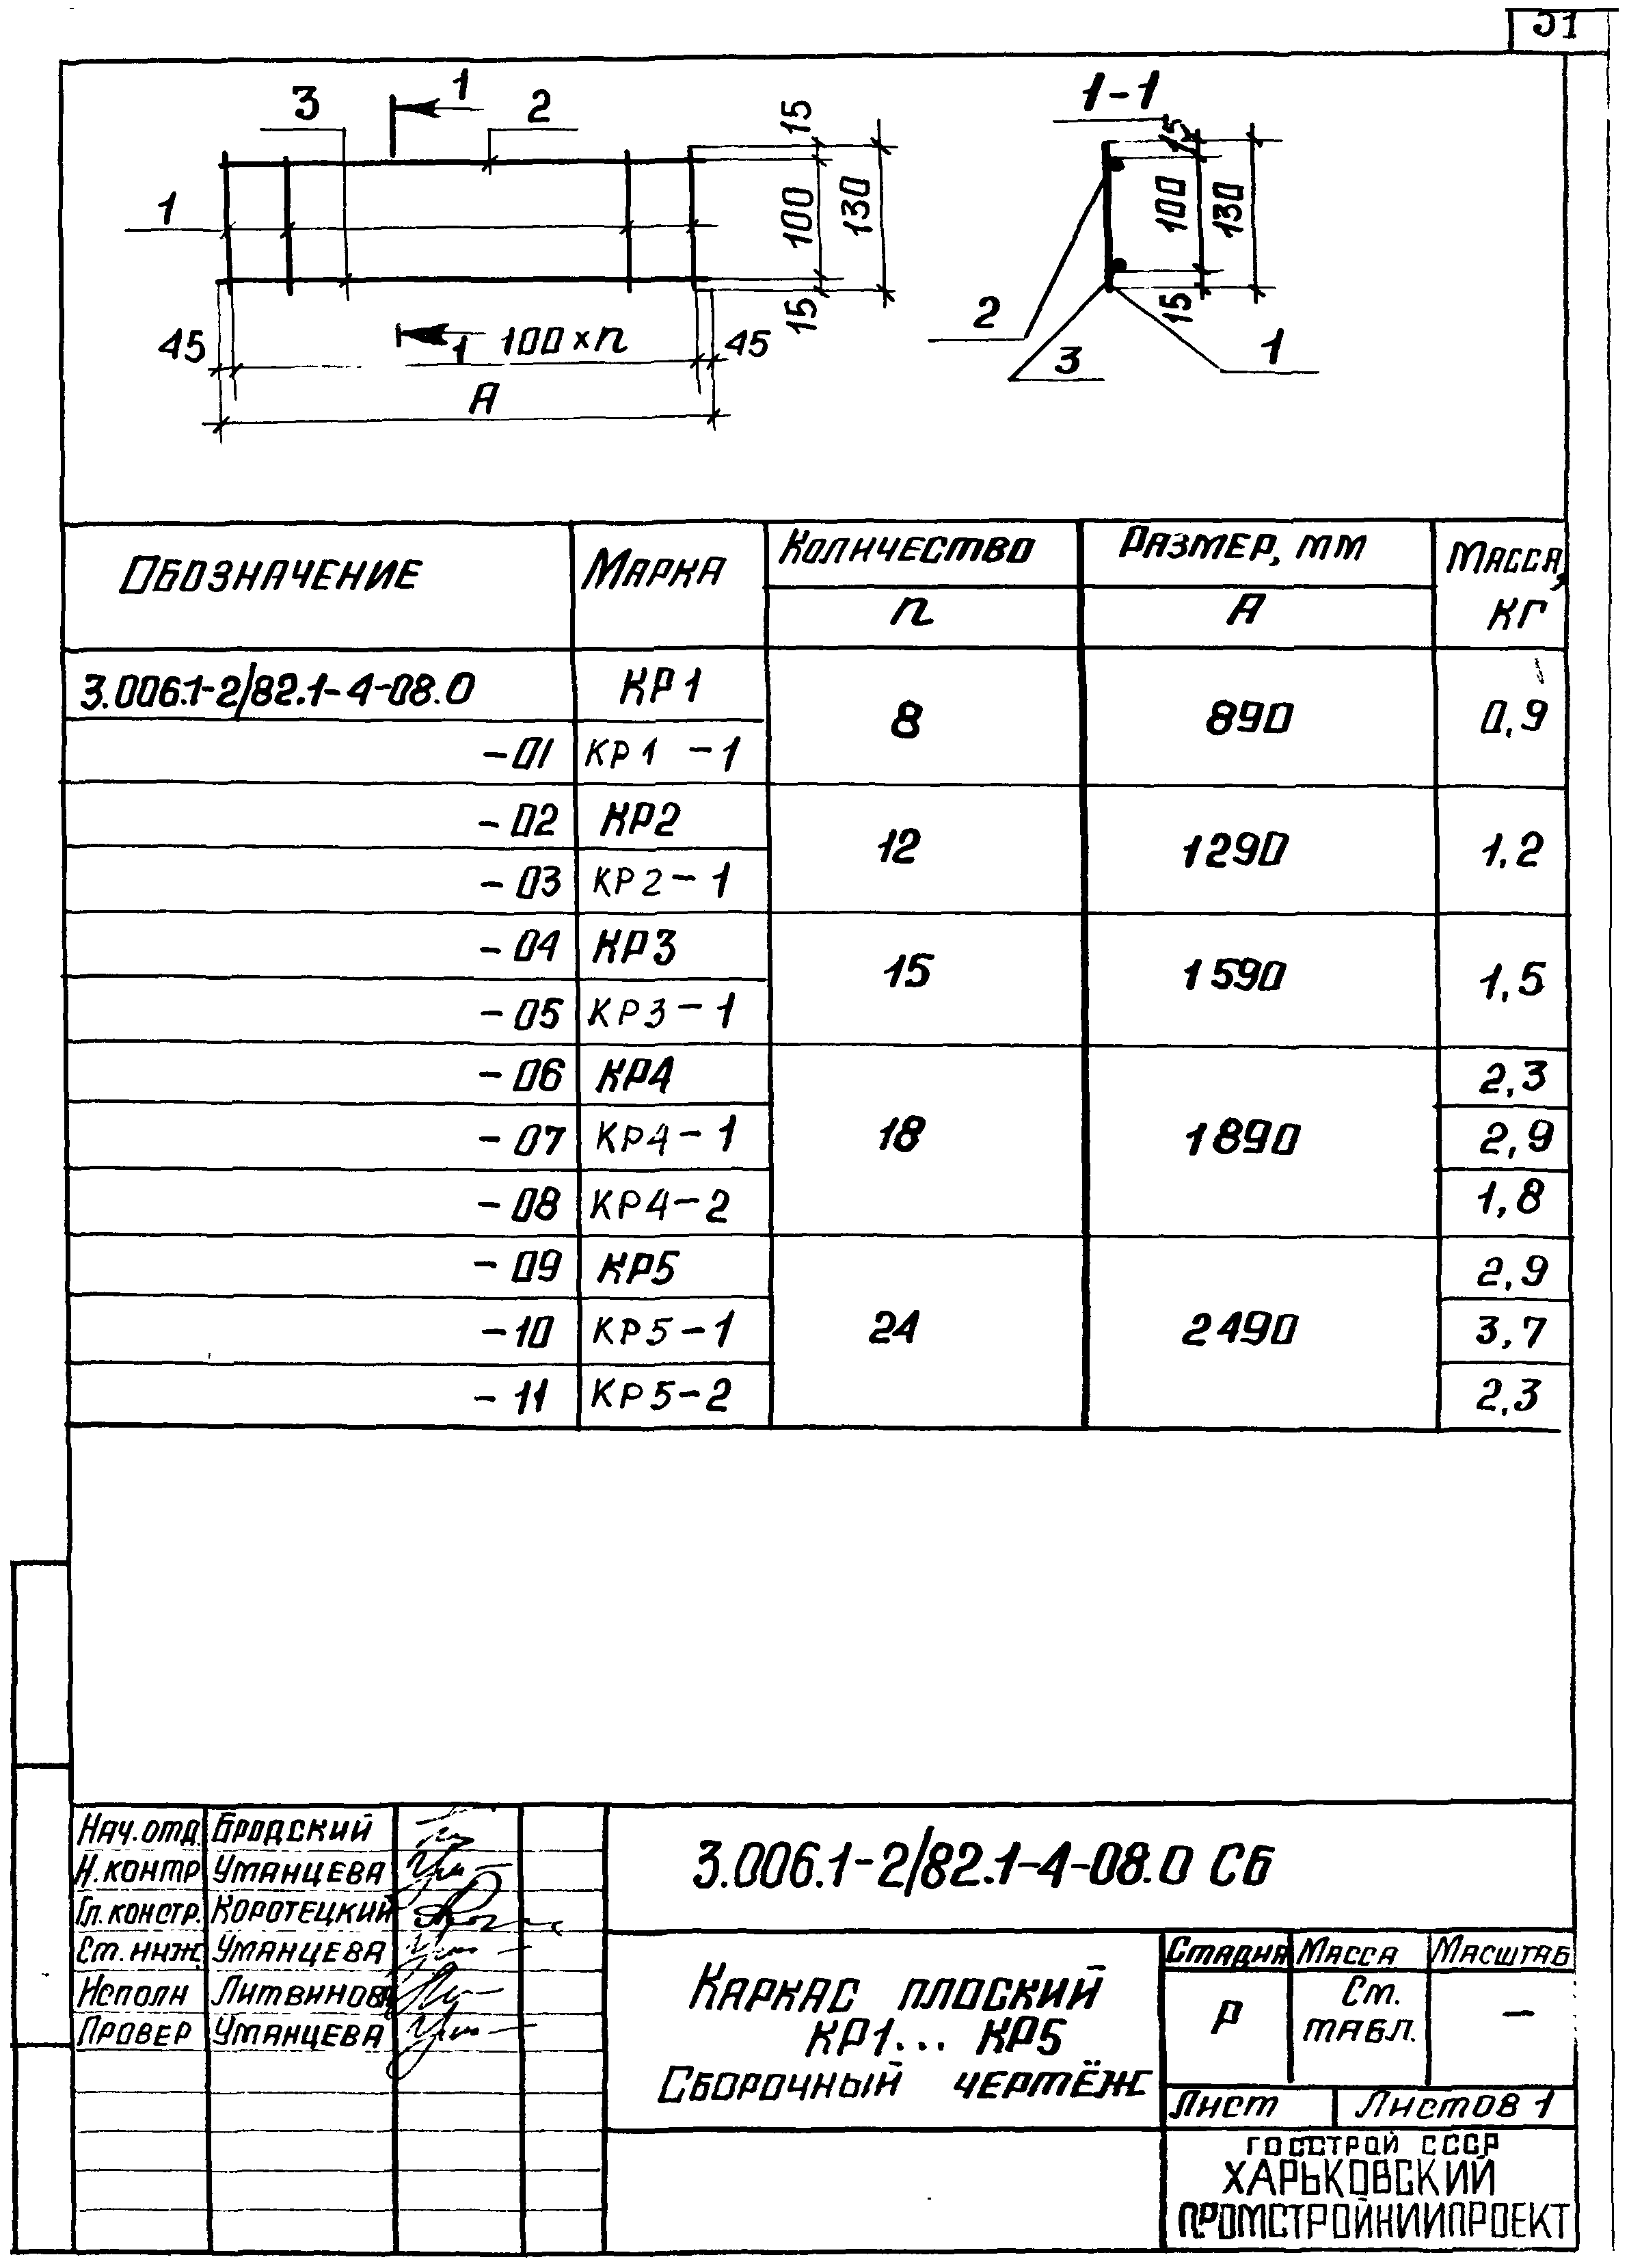 1
3
2
1
15
100
130
15
45
1
100×n
45
A
1-1
15
100
130
15
2
3
1
Обозначение Марка Количество Размер, мм Масса, кг
n A
3.006.1-2/82.1-4-08.0 КР1 8 890 0,9
-01 КР1-1
-02 КР2 12 1290 1,2
-03 КР2-1
-04 КР3 15 1590 1,5
-05 КР3-1
-06 КР4 18 1890 2,3
-07 КР4-1 2,9
-08 КР4-2 1,8
-09 КР5 24 2490 2,9
-10 КР5-1 3,7
-11 КР5-2 2,3
Нач.отд. Бродский
Н.контр Уманцева
Гл.констр. Коротецкий
Ст.инж Уманцева
Исполн Литвинова
Провер Уманцева
3.006.1-2/82.1-4-08.0 СБ
Каркас плоский
КР1... КР5
Сборочный чертёж
Стадия Масса Масштаб
Р См. табл. —
Лист Листов 1
ГОССТРОЙ СССР
ХАРЬКОВСКИЙ
ПРОМСТРОЙНИИПРОЕКТ